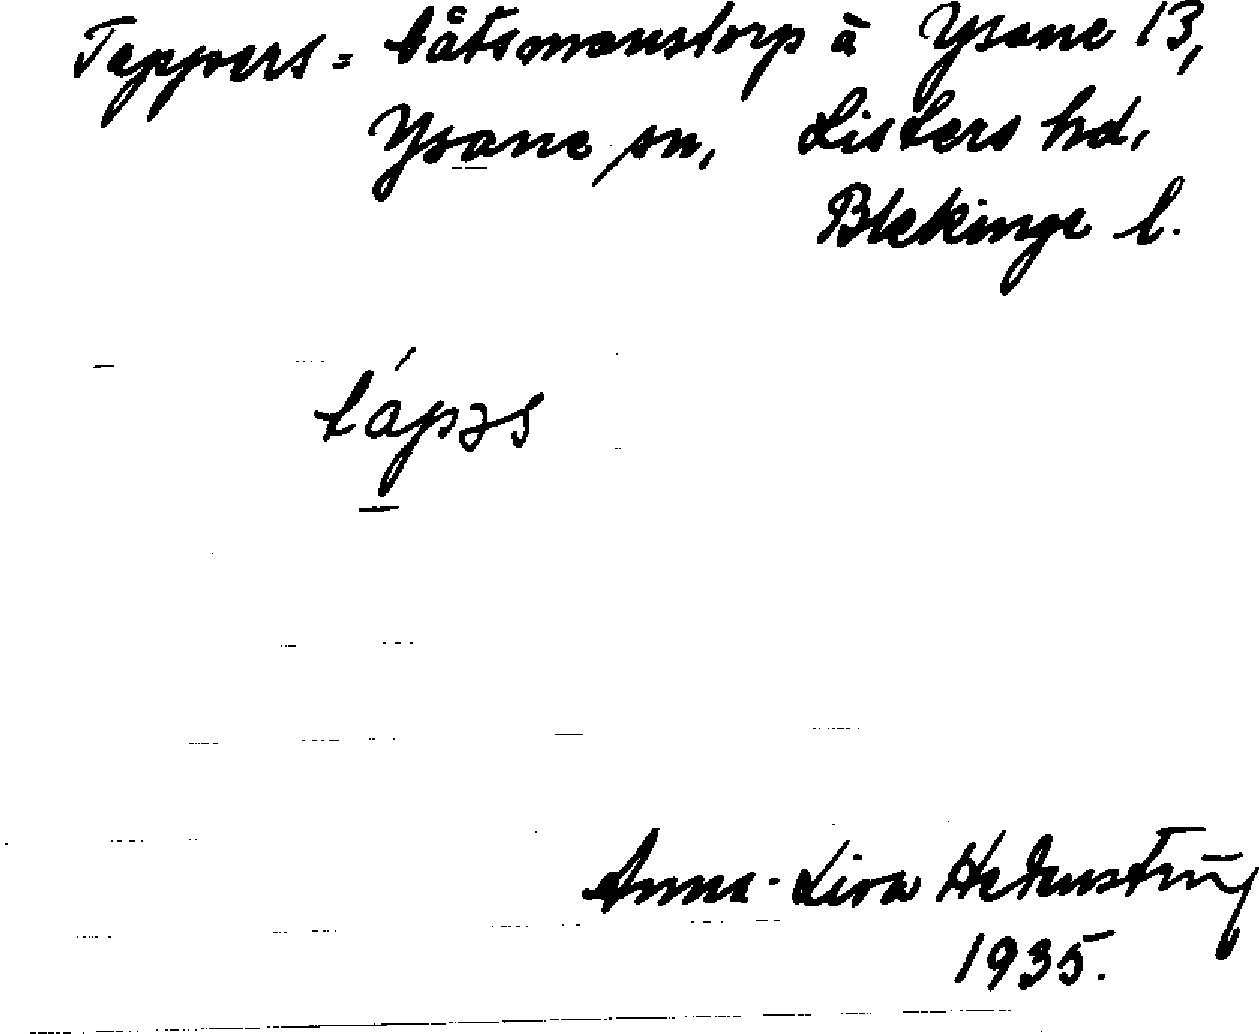 Tappers = båtsmanstorp å Ysane 13,
Ysane sn, Listers hd,
Blekinge l.
tápəs
Anna-Lisa Hedenström
1935.